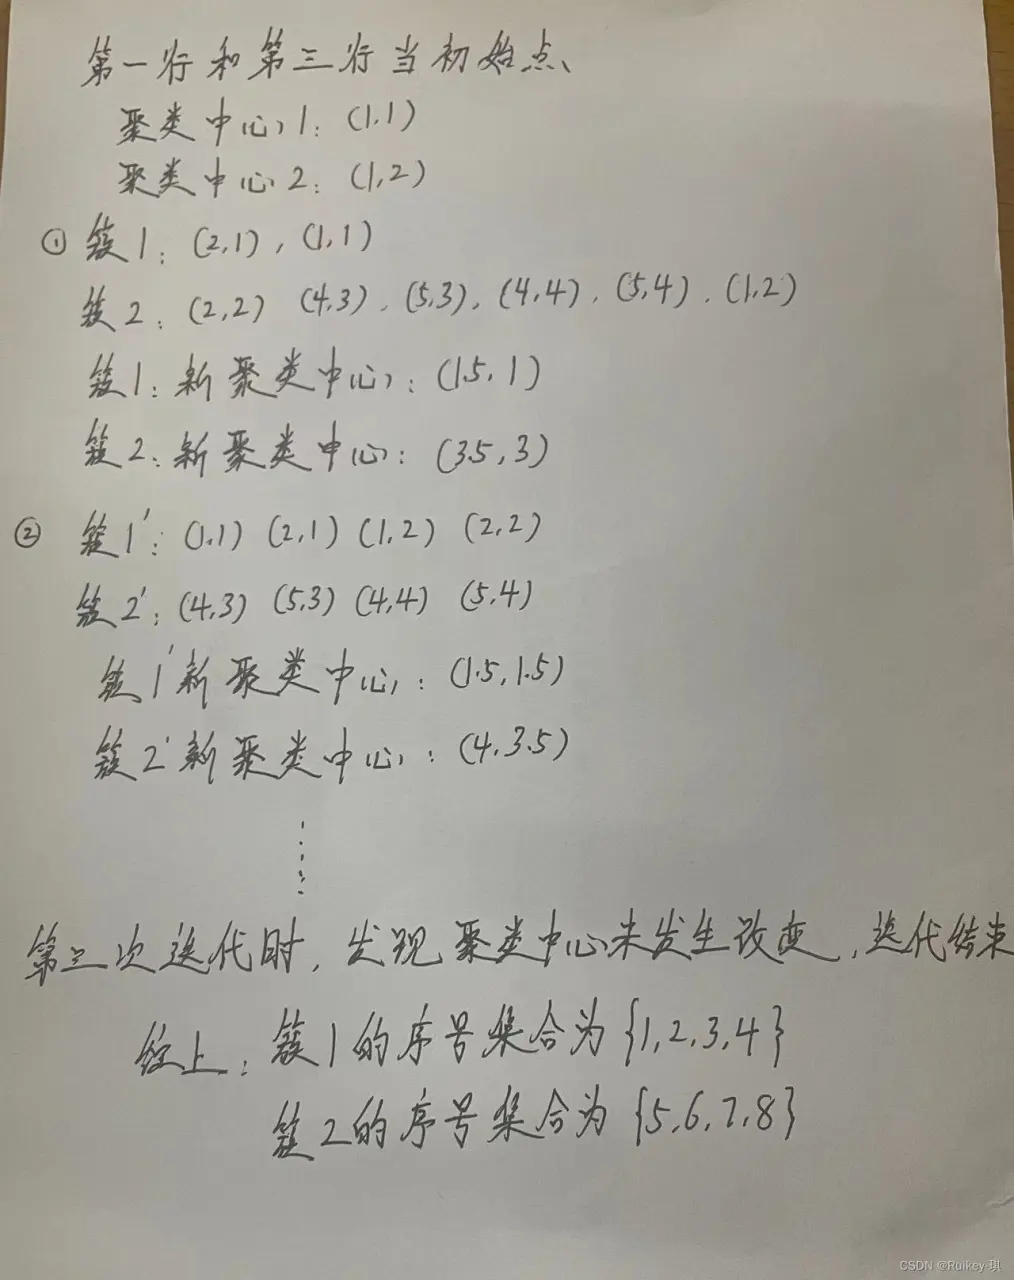 第一行和第三行当初始点、
聚类中心1：(1.1)
聚类中心2：(1,2)
① 簇1：(2,1)，(1,1)
簇2：(2,2) (4,3)．(5,3)，(4,4)．(5,4)．(1,2)
簇1：新聚类中心：(1.5，1)
簇2：新聚类中心：(3.5，3)
② 簇1'：(1.1) (2,1) (1,2) (2,2)
簇2'：(4,3) (5,3) (4,4) (5,4)
簇1'新聚类中心：(1.5,1.5)
簇2'新聚类中心：(4.3.5)
······
第三次迭代时，发现聚类中心未发生改变，迭代结束
综上：簇1的序号集合为{1,2,3,4}
簇2的序号集合为{5,6,7,8}
CSDN @Ruikey·琪